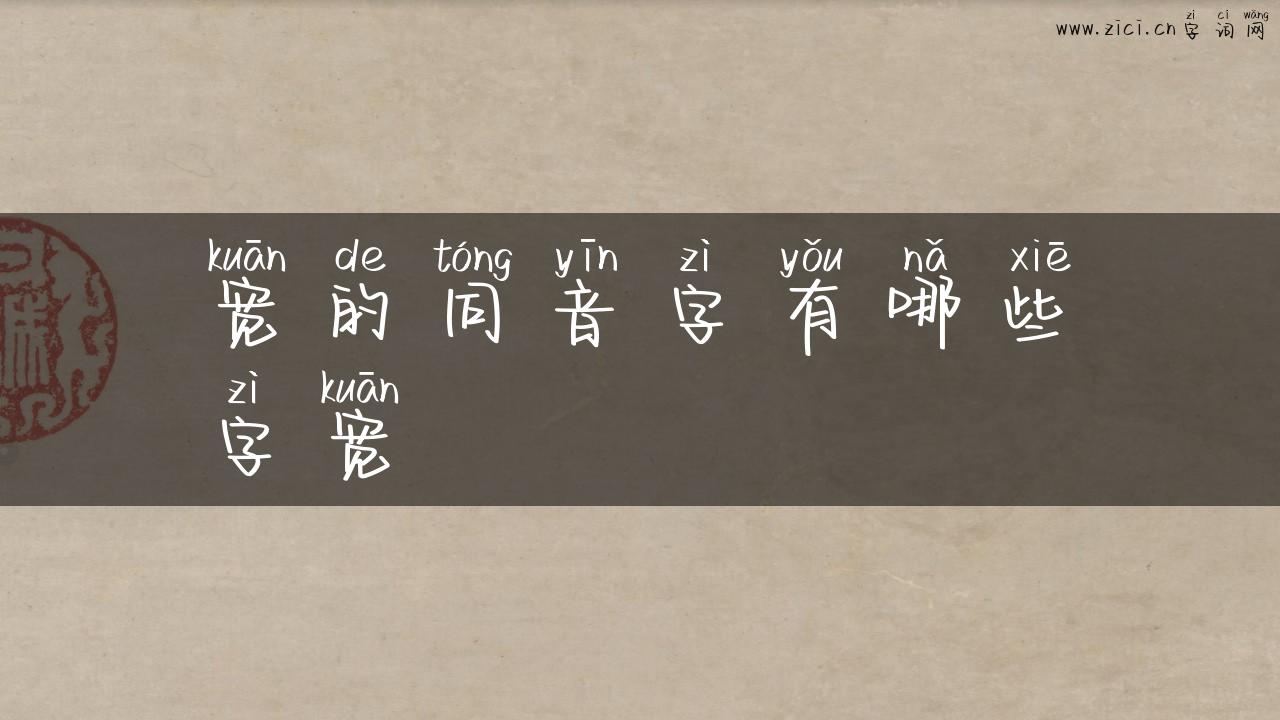 zì cí wǎng
www.zici.cn 字词网
kuān de tóng yīn zì yǒu nǎ xiē
宽的同音字有哪些
zì kuān
字宽